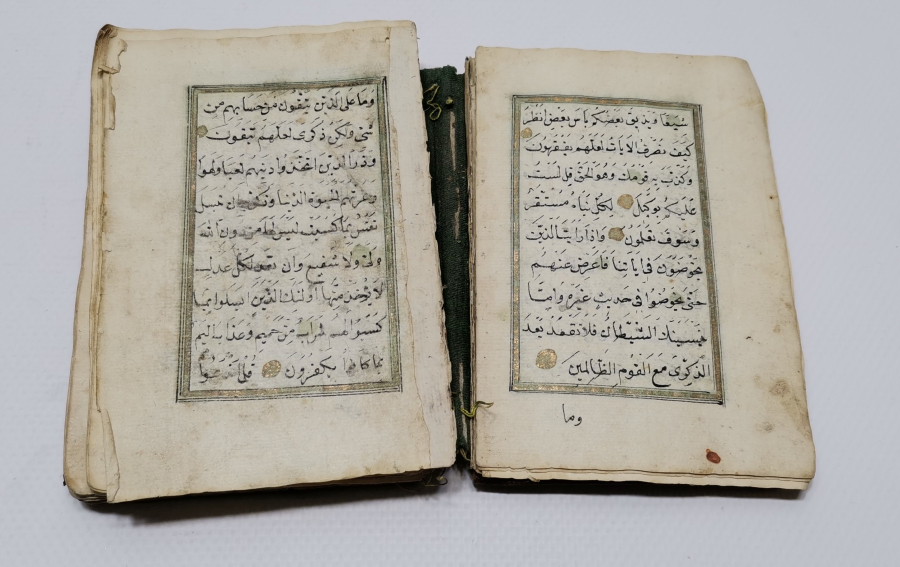 شيعا ويذيق بعضكم باس بعض انظر
كيف نصرف الايات لعلهم يفقهون
وكذب به قومك وهو الحق قل لست
عليكم بوكيل لكل نباء مستقر
وسوف تعلمون واذا رايت الذين
يخوضون في اياتنا فاعرض عنهم
حتى يخوضوا في حديث غيره واما
ينسينك الشيطان فلا تقعد بعد
الذكرى مع القوم الظالمين
وما
وما على الذين يتقون من حسابهم من
شئ ولكن ذكرى لعلهم يتقون
وذر الذين اتخذوا دينهم لعبا ولهوا
وغرتهم الحيوة الدنيا وذكر به ان تبسل
نفس بما كسبت ليس لها من دون الله
ولي ولا شفيع وان تعدل كل عدل
لا يؤخذ منها اولئك الذين ابسلوا بما
كسبوا لهم شراب من حميم وعذاب اليم
بما كانوا يكفرون قل اندعوا